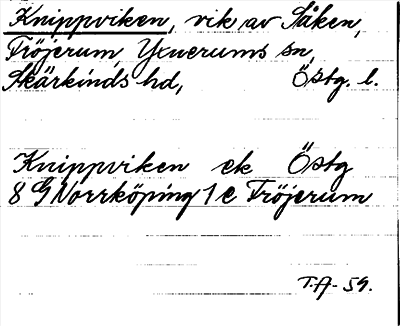 Knippviken, vik av Såken,
Fröjerum, Yxnerums sn,
Skärkinds hd, Östg. l.
Knippviken ek Östg
8 G Norrköping 1 e Fröjerum
T.A. 59.